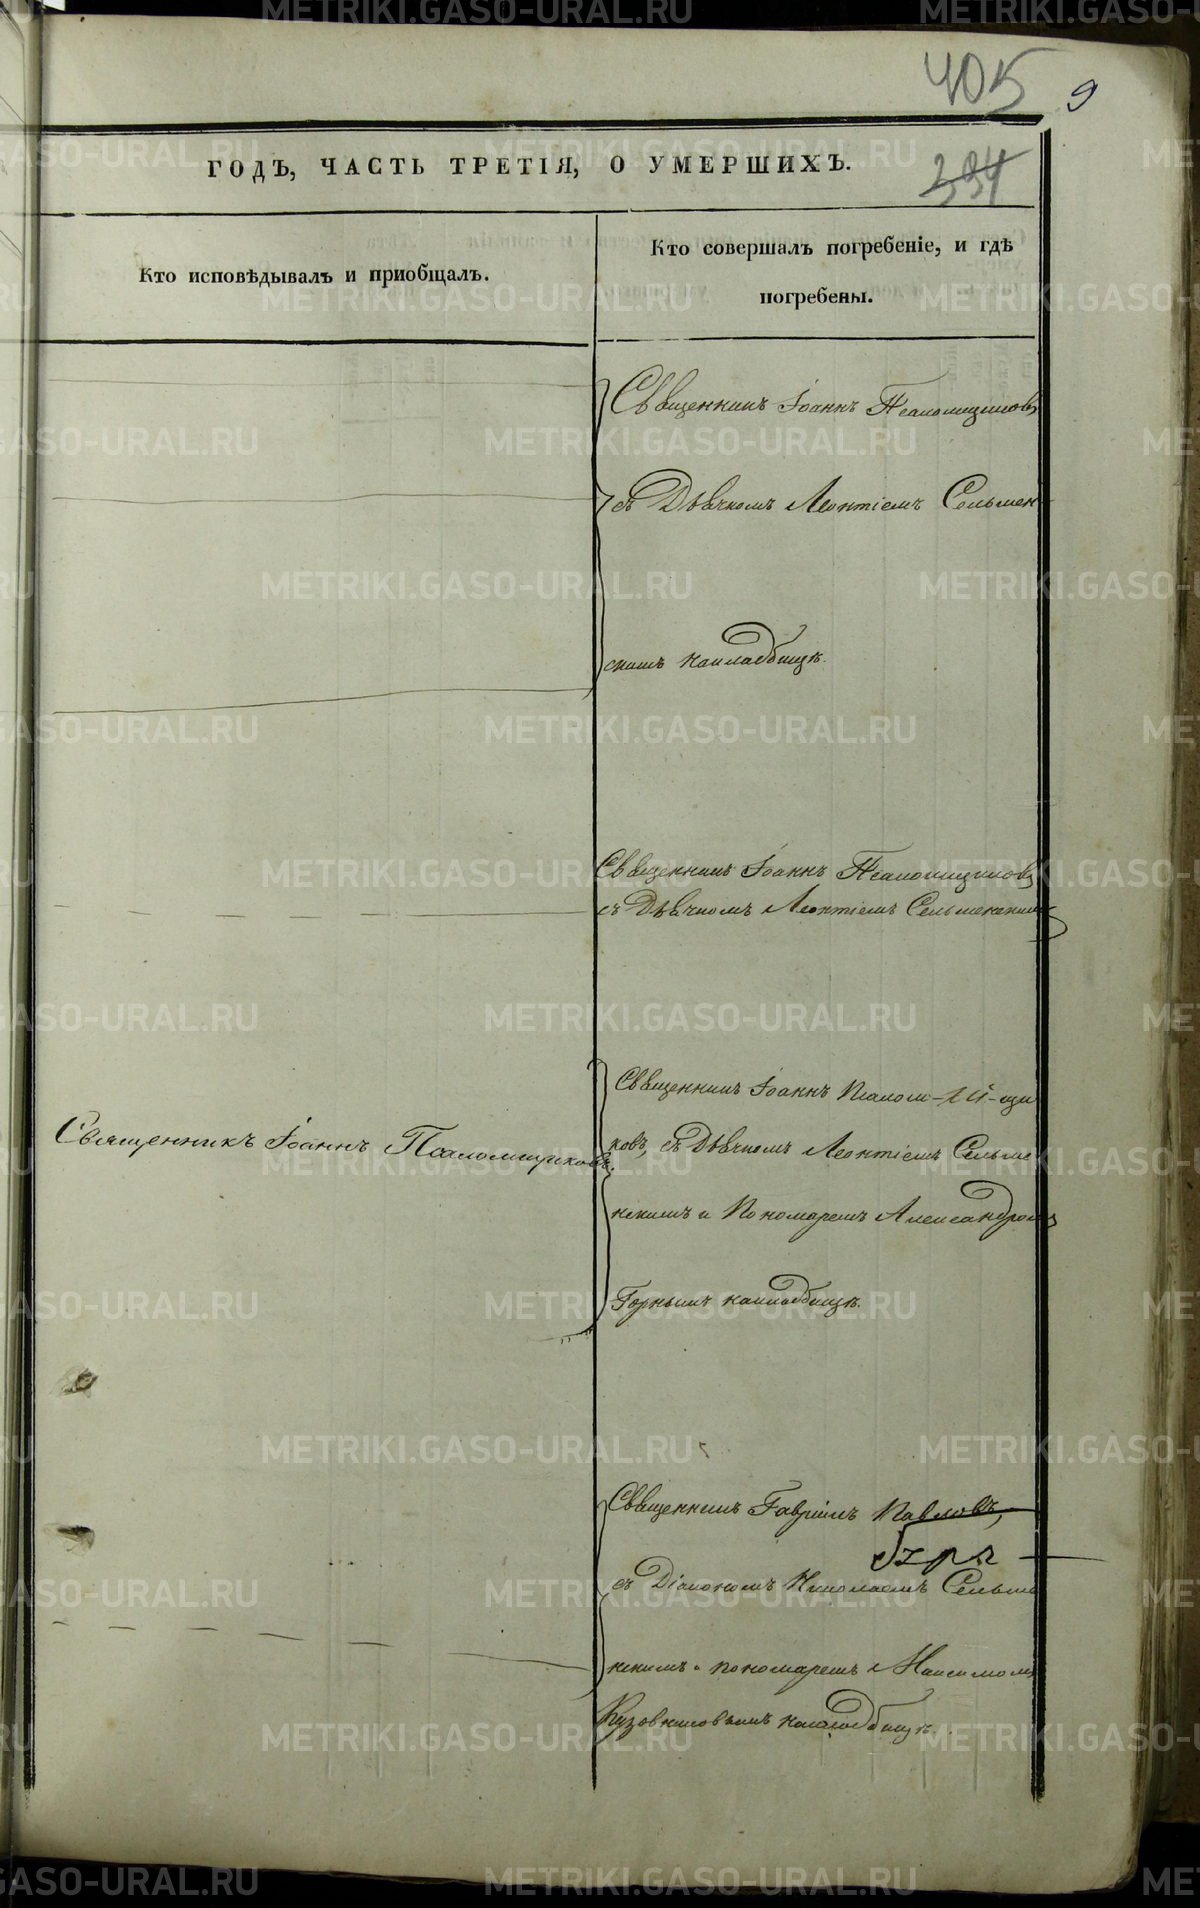 405 9
394
ГОДЪ, ЧАСТЬ ТРЕТІЯ, О УМЕРШИХЪ.
Кто исповѣдывалъ и пріобщалъ.
Кто совершалъ погребеніе, и гдѣ
погребены.
Священникъ Іоаннъ Псаломщиковъ
съ Дьячкомъ Леонтіемъ Сельмен
скимъ накладбищѣ.
Священникъ Іоаннъ Псаломщиковъ
съ Дьячкомъ Леонтіемъ Сельменскимъ
Священникъ Іоаннъ Псаломщиковъ.
Священникъ Іоаннъ Псалом-щи
ковъ, съ Дьячкомъ Леонтіемъ Сельме
нскимъ и Пономаремъ Александромъ
Горнымъ накладбищѣ.
Священникъ Гавріилъ Павловъ,
съ Діакономъ Николаемъ Сельме
нскимъ и пономаремъ Максимомъ
Кузовниковымъ накладбищѣ.
METRIKI.GASO-URAL.RU